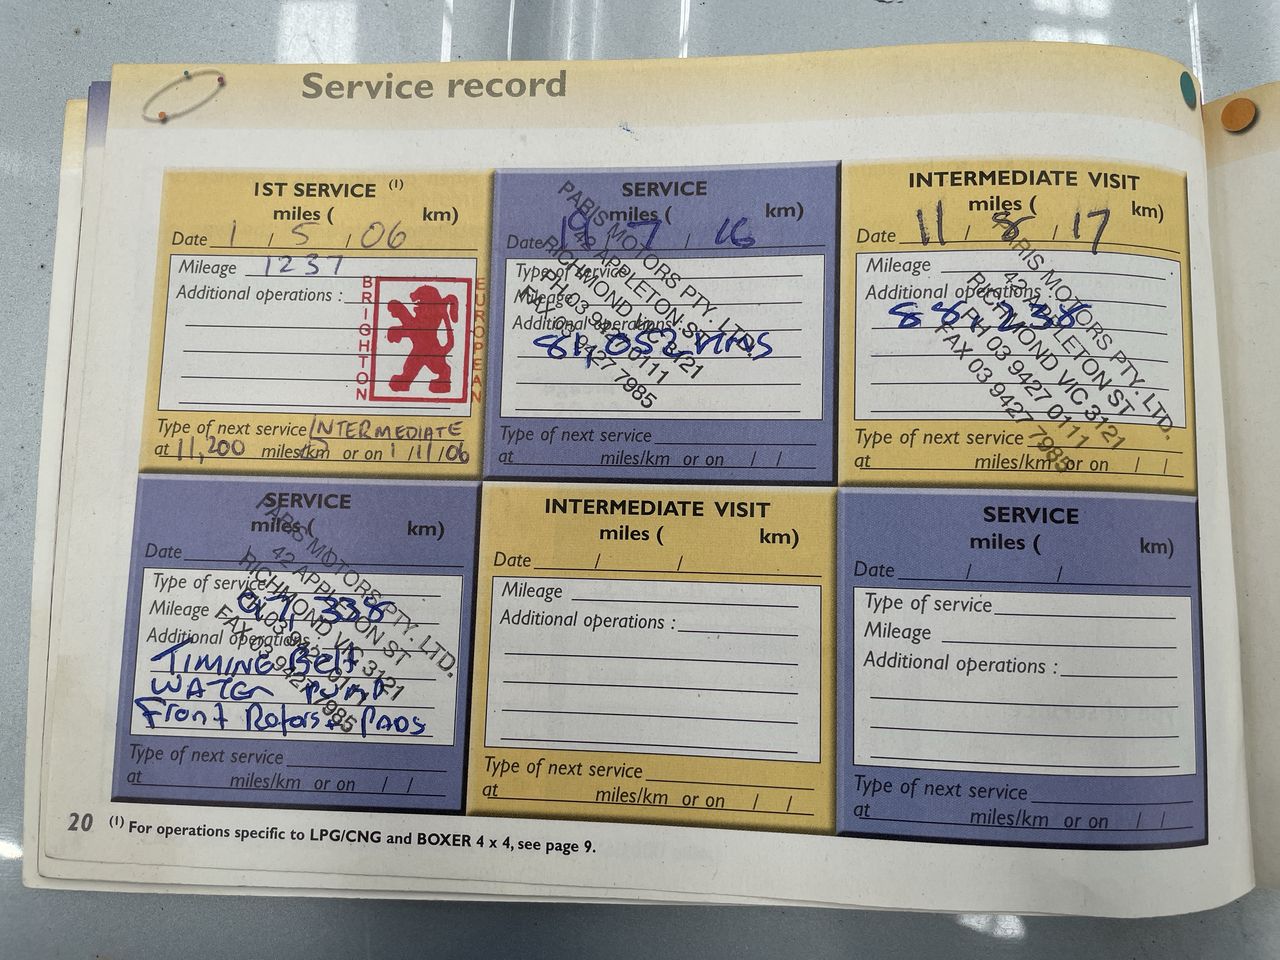 Service record
1ST SERVICE (1)
miles ( km)
Date 1 / 5 / 06
Mileage 1237
Additional operations :
BRIGHTON
EUROPEAN
Type of next service INTERMEDIATE
at 11,200 miles/km or on 1 / 11 / 06
SERVICE
miles ( km)
Date 19 / 7 / 16
Type of service
Mileage
Additional operations
84,052 KMS
PARIS MOTORS PTY. LTD.
42 APPLETON ST
RICHMOND VIC 3121
PH 03 9427 0111
FAX 03 9427 7985
Type of next service
at miles/km or on / /
INTERMEDIATE VISIT
miles ( km)
Date 11 / 8 / 17
Mileage
Additional operations
88,238
PARIS MOTORS PTY. LTD.
42 APPLETON ST
RICHMOND VIC 3121
PH 03 9427 0111
FAX 03 9427 7985
Type of next service
at miles/km or on / /
SERVICE
miles ( km)
Date
Type of service
Mileage 97,338
Additional operations
TIMING Belt
WATER PUMP
Front Rotors + PADS
PARIS MOTORS PTY. LTD.
42 APPLETON ST
RICHMOND VIC 3121
PH 03 9427 0111
FAX 03 9427 7985
Type of next service
at miles/km or on / /
INTERMEDIATE VISIT
miles ( km)
Date / /
Mileage
Additional operations :
Type of next service
at miles/km or on / /
SERVICE
miles ( km)
Date / /
Type of service
Mileage
Additional operations :
Type of next service
at miles/km or on / /
20 (1) For operations specific to LPG/CNG and BOXER 4 x 4, see page 9.